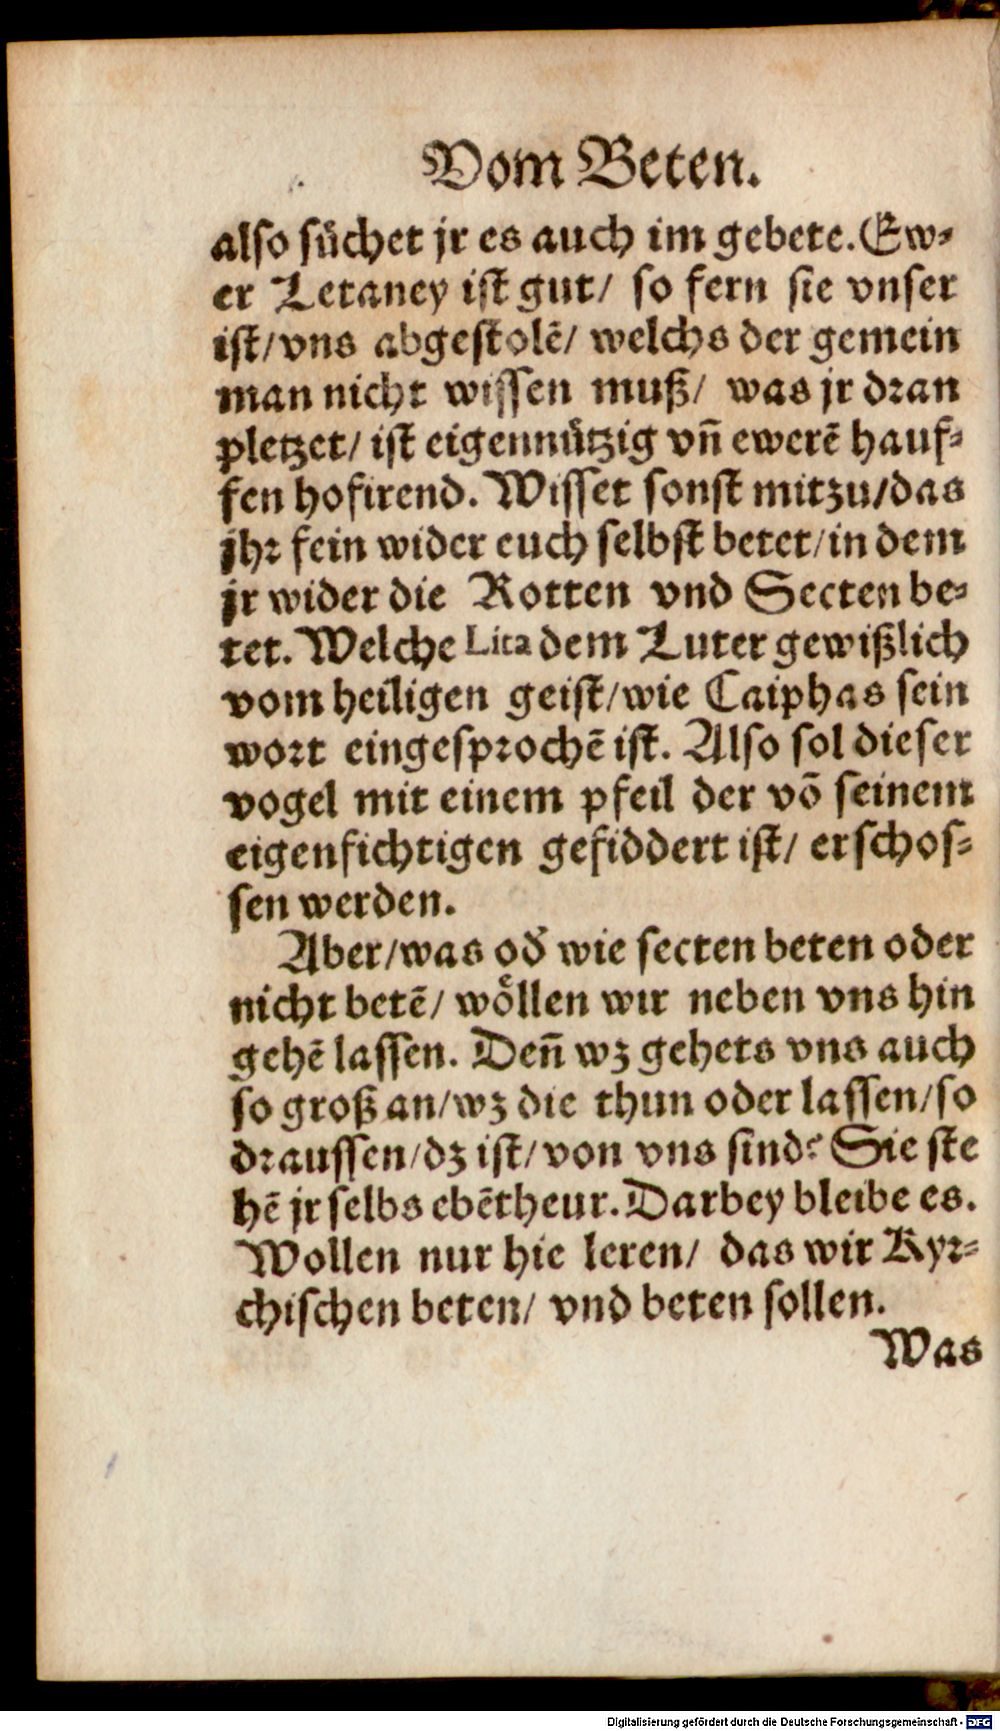 Vom Beten.
also sůchet jr es auch im gebete. Ew⸗
er Letaney ist gut/ so fern sie vnser
ist/ vns abgestolē/ welchs der gemein
man nicht wissen muß/ was jr dran
pletzet/ ist eigennützig vñ ewerē hauf⸗
fen hofirend. Wisset sonst mitzu/ das
jhr fein wider euch selbst betet/ in dem
jr wider die Rotten vnd Secten be⸗
tet. Welche Lita dem Luter gewißlich
vom heiligen geist/ wie Caiphas sein
wort eingesprochē ist. Also sol dieser
vogel mit einem pfeil der võ seinem
eigenfichtigen gefiddert ist/ erschos⸗
sen werden.
Aber/ was od̛ wie secten beten oder
nicht betē/ wöllen wir neben vns hin
gehē lassen. Deñ wz gehets vns auch
so groß an/ wz die thun oder lassen/ so
draussen/ dz ist/ von vns sind? Sie ste
hē jr selbs ebētheur. Darbey bleibe es.
Wollen nur hie leren/ das wir Kyr⸗
chischen beten/ vnd beten sollen.
Was
Digitalisierung gefördert durch die Deutsche Forschungsgemeinschaft - DFG